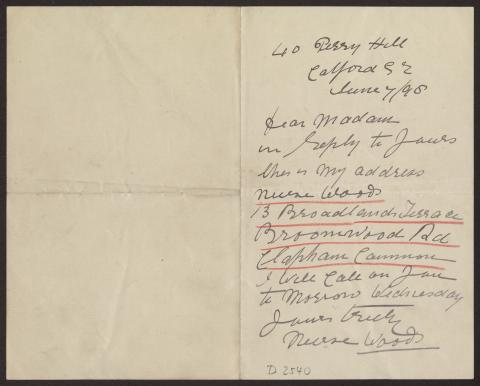 40 Perry Hill
Catford SE
June 7/98
Dear Madam
in Reply to Yours
this is My address
Nurse Woods
13 Broadlands Terrace
Broomwood Rd
Clapham Common
I Will Call on You
to Morrow Wednesday
Yours truly
Nurse Woods
D 2540